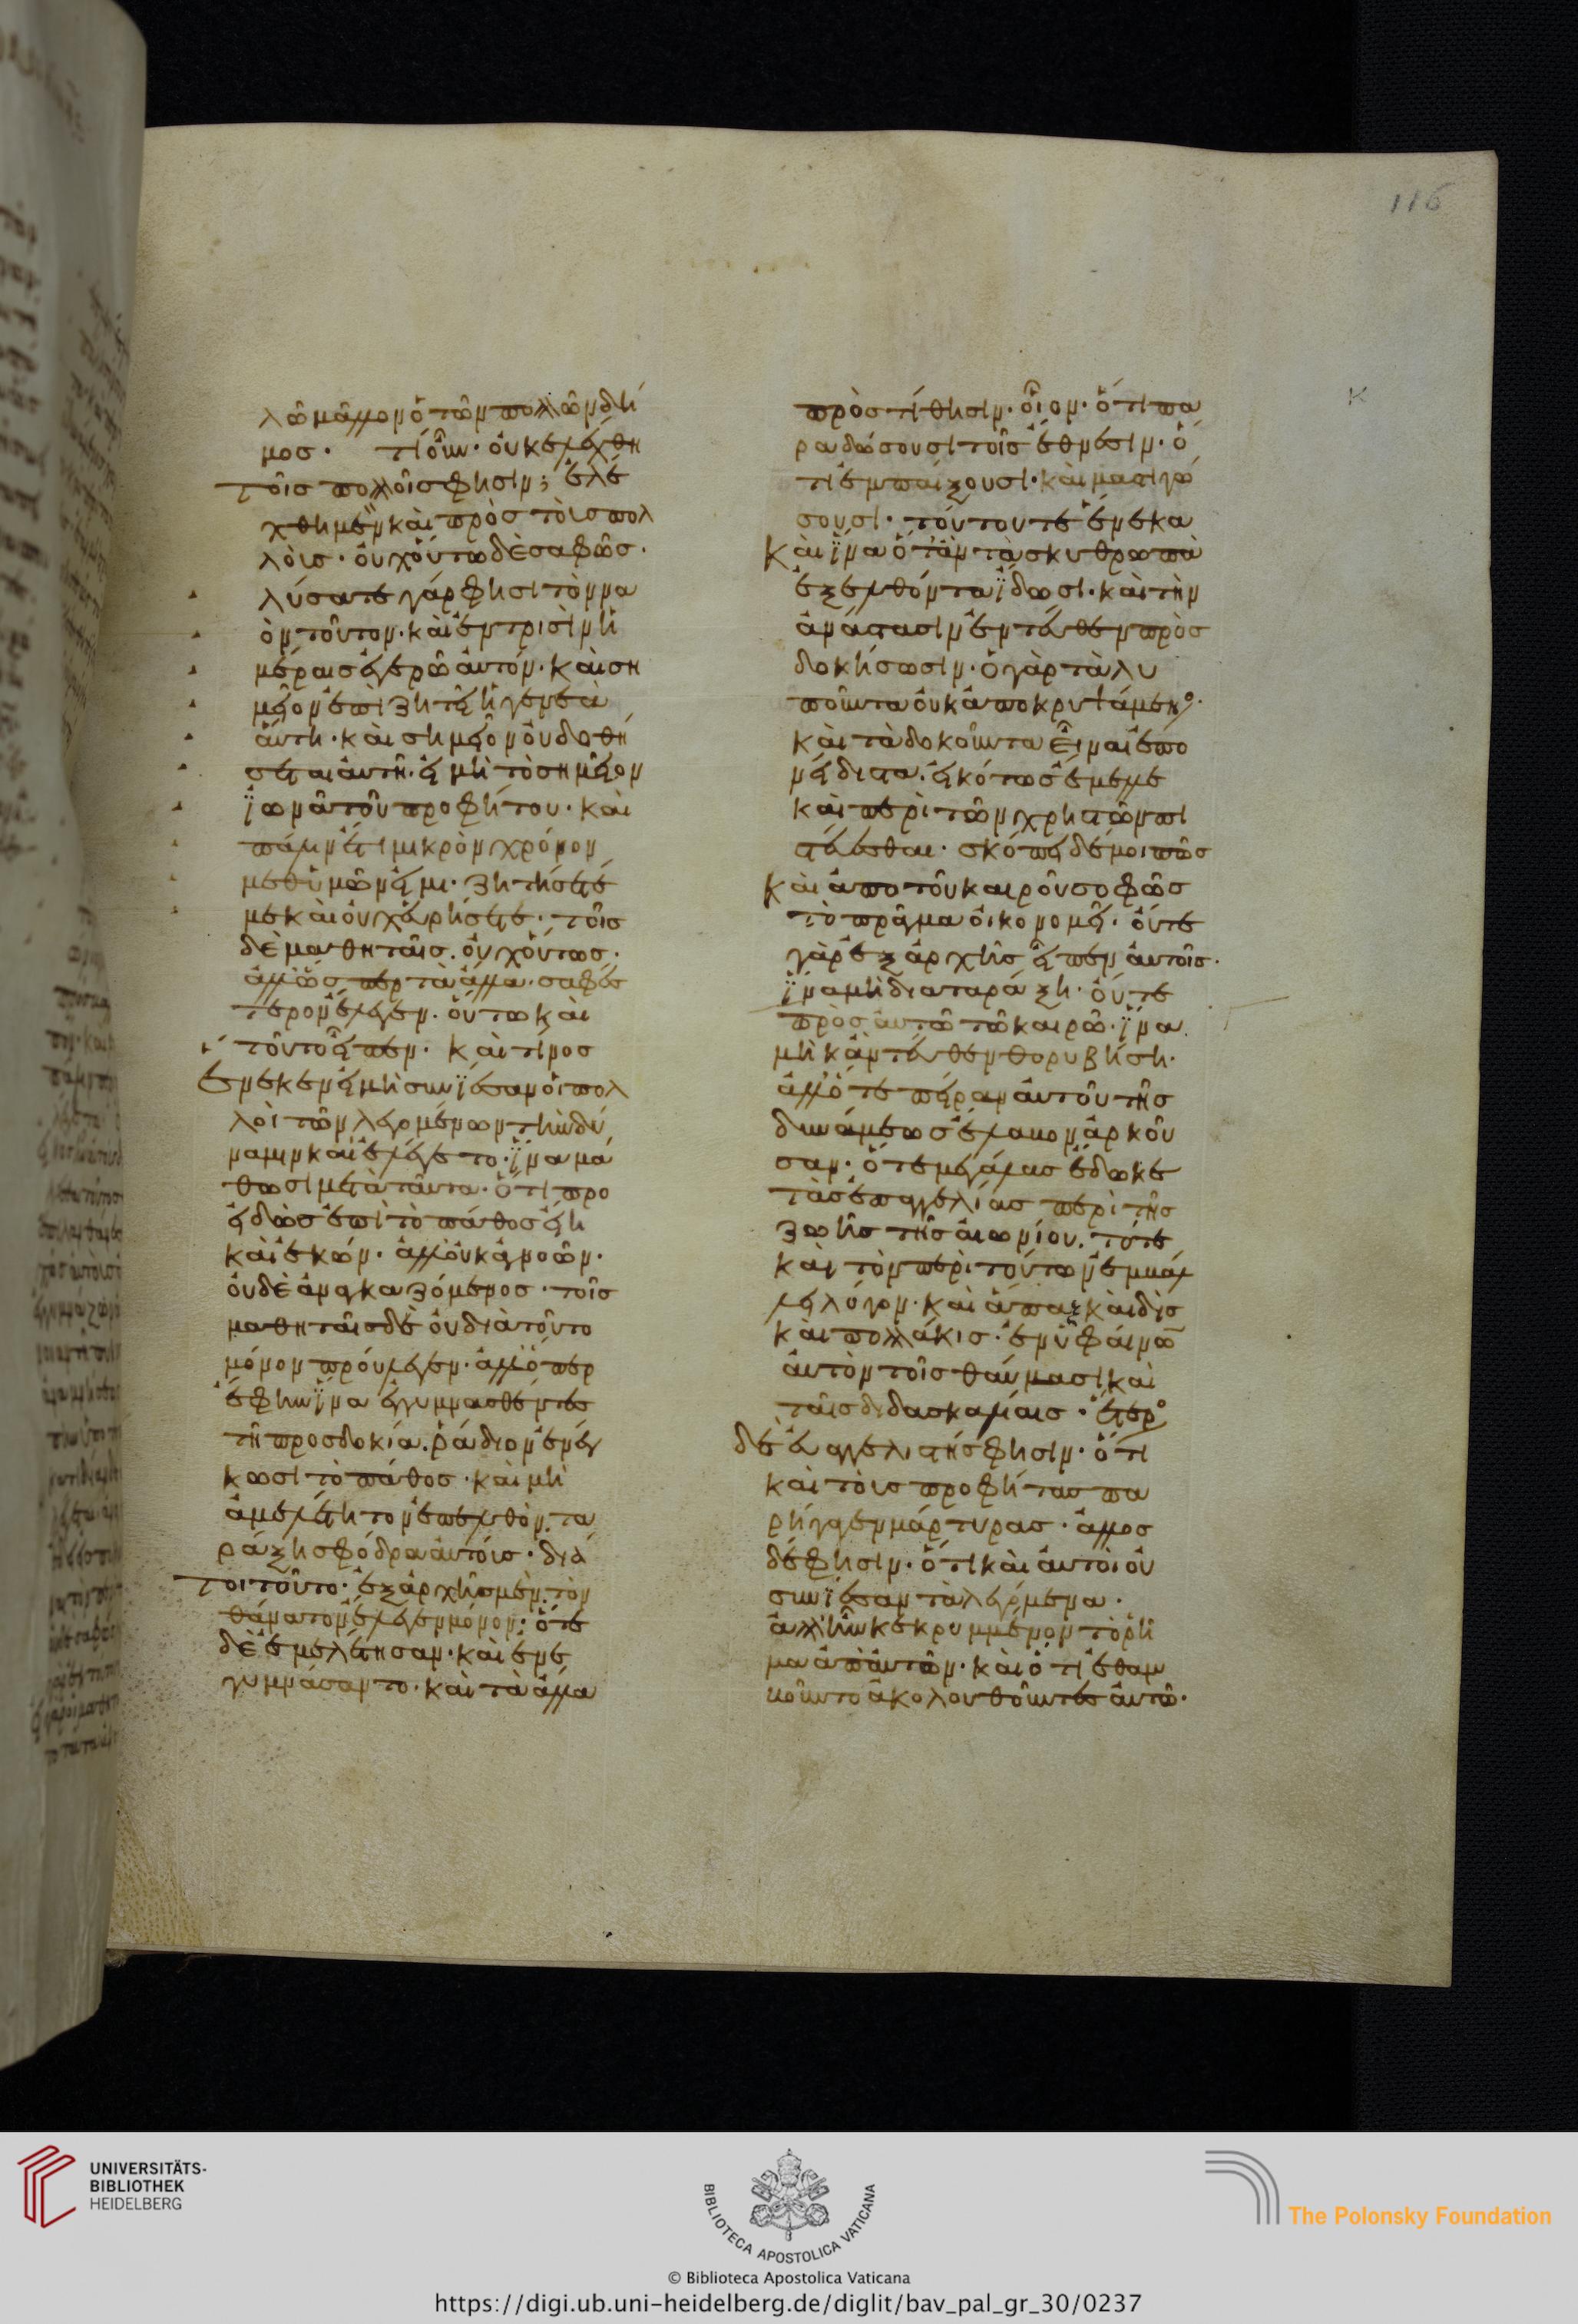 λῶ μᾶλλον ὁ τῶν πολλῶν δή
μος· τί οὖν· οὐκ ἐλέχθη
τοῖς πολλοῖς φησιν; ἐλέ
χθη μὲν καὶ πρὸς τοὺς πολ
λούς· οὐχ οὕτω δὲ σαφῶς·
λύσατε γάρ φησι τὸν να
ὸν τοῦτον· καὶ ἐν τρισὶν ἡ
μέραις ἐγερῶ αὐτόν· καὶ ση
μεῖον ἐπιζητεῖ ἡ γενεὰ
αὕτη· καὶ σημεῖον οὐ δοθή
σεται αὐτῆ· εἰ μὴ τὸ σημεῖον
ἰωνᾶ τοῦ προφήτου· καὶ
πάλιν ἔτι μικρὸν χρόνον
μεθ ὑμῶν εἰμι· ζητήσετέ
με καὶ οὐχ εὑρήσετε· τοῖς
δὲ μαθηταῖς· οὐχ οὕτως·
ἀλλ ὥσπερ τὰ ἄλλα· σαφέσ
τερον ἔλεγεν· οὕτω καὶ
τοῦτο εἶπεν· καὶ τίνος
ἕνεκεν εἰ μὴ συνΐεσαν οἱ πολ
λοὶ τῶν λεγομένων τὴν δύ
ναμιν καὶ ἐλέγετο· ἵνα μά
θωσι μετὰ ταῦτα· ὅτι προ
ειδὼς ἐπὶ τὸ πάθος ἤει
καὶ ἑκών· ἀλλ οὐκ ἀγνοῶν·
οὐδὲ ἀναγκαζόμενος· τοῖς
μαθηταῖς δὲ οὐ διὰ τοῦτο
μόνον προύλεγεν· ἀλλ ὅπερ
ἔφην ἵνα ἐγγυμνασθέντες
τῆ προσδοκία· ῥάδιον ἐνέγ
κωσι τὸ πάθος· καὶ μὴ
ἀμελέτητον ἐπελθὸν· τα
ράξη σφόδρα αὐτούς· διά
τοι τοῦτο· ἐξ ἀρχῆς μὲν τὸν
θάνατον ἔλεγεν μόνον· ὅτε
δὲ ἐμελέτησαν· καὶ ἐνε
γυμνάσαντο· καὶ τὰ ἄλλα
προστίθησιν· οἷον· ὅτι πα
ραδώσουσι τοῖς ἔθνεσιν· ὅ
τι ἐμπαίξουσι· καὶ μαστιγώ
σουσι· τούτου τε ἕνεκα
καὶ ἵνα ὅταν τὰ σκυθρωπὰ
ἐξελθόντα ἴδωσι· καὶ τὴν
ἀνάστασιν ἐντεύθεν πρὸς
δοκήσωσιν· ὁ γὰρ τὰ λυ
ποῦντα οὐκ ἀποκρυψάμενος·
καὶ τὰ δοκοῦντα εἶναι ἐπο
νείδιστα· εἰκότως ἔμελλε
καὶ περὶ τῶν χρηστῶν πι
στεύεσθαι· σκόπει δέ μοι πῶς
καὶ ἀπο τοῦ καιροῦ σοφῶς
τὸ πρᾶγμα οἰκονομεῖ· οὔτε
γὰρ ἐξ ἀρχῆς εἶπεν αὐτοῖς·
ἵνα μὴ διαταράξη· οὔτε
πρὸς αὐτῶ τῶ καιρῶ· ἵνα
μὴ κἀντεύθεν θορυβήση·
ἀλλ ὅτε πεῖραν αὐτοῦ τῆς
δυνάμεως ἔλαβον ἀρκοῦ
σαν· ὅτε μεγάλας ἔδωκε
τὰς ἐπαγγελίας περὶ τῆς
ζωῆς τῆς αἰωνίου· τότε
καὶ τὸν περὶ τούτων ἐμβάλ
λει λόγον· καὶ ἅπαξ καὶ δὶς
καὶ πολλάκις· ἐνυφαίνων
αὐτὸν τοῖς θαύμασι καὶ
ταῖς διδασκαλίαις· ἕτερος
δὲ εὐαγγελιστής φησιν· ὅτι
καὶ τοὺς προφήτας πα
ρήγαγεν μάρτυρας· ἄλλος
δέ φησιν· ὅτι καὶ αὐτοὶ οὐ
συνΐεσαν τὰ λεγόμενα·
ἀλλ ἦν κεκρυμμένον τὸ ῥῆ
μα ἀπ αὐτῶν· καὶ ὅτι ἐθαμ
βοῦντο ἀκολουθοῦντες αὐτῶ·
116
κ
UNIVERSITÄTS-
BIBLIOTHEK
HEIDELBERG
BIBLIOTECA APOSTOLICA VATICANA
© Biblioteca Apostolica Vaticana
The Polonsky Foundation
https://digi.ub.uni-heidelberg.de/diglit/bav_pal_gr_30/0237